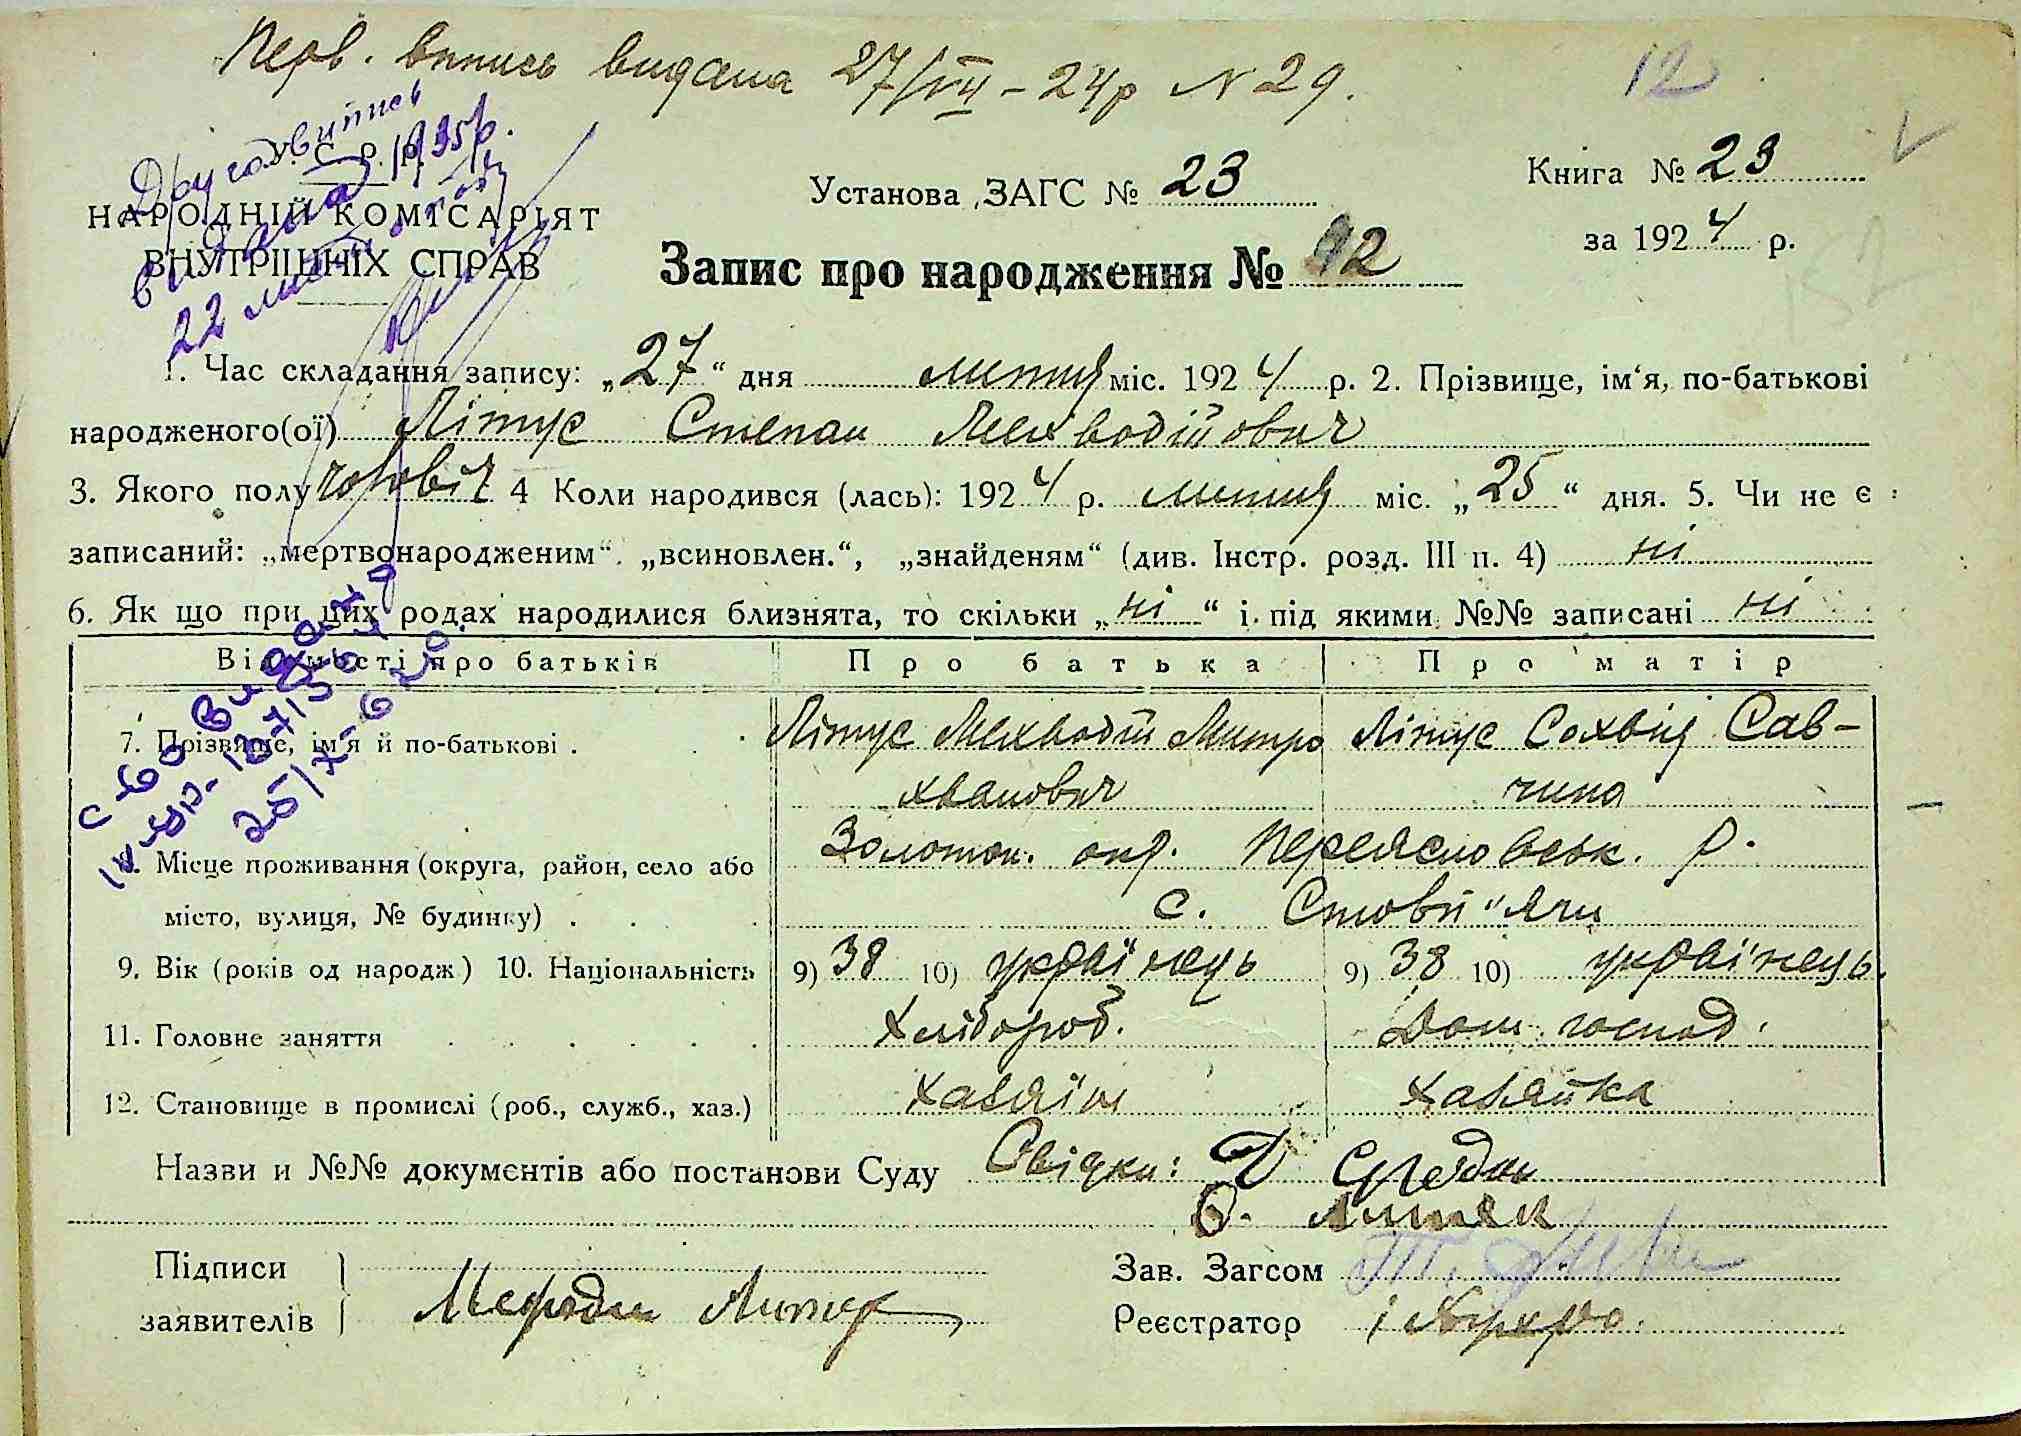 Перв. випись видана 27/VII – 24р N 29.
12
Друга випись
видана 1935р.
22 лютого
У. С. Р. Р.
НАРОДНІЙ КОМІСАРІЯТ
ВНУТРІШНІХ СПРАВ
Установа ЗАГС № 23
Книга № 23
за 1924 р.
Запис про народження № 12
1. Час складання запису: „27“ дня лютия міс. 1924 р. 2. Прізвище, ім‘я, по-батькові
народженого(ої) Літус Степан Мехводійович
3. Якого полу чоловіч 4 Коли народився (лась): 1924 р. лютия міс. „25“ дня. 5. Чи не є
записаний: „мертвонародженим“. „всиновлен.“, „знайденям“ (див. Інстр. розд. III п. 4) ні
6. Як що при цих родах народилися близнята, то скільки „ні“ і під якими №№ записані ні
Відомості про батьків Про батька Про матір
7. Прізвище, ім‘я й по-батькові . Літус Мехводій Митро Літус Сохвія Сав–
хванович чина
8. Місце проживання (округа, район, село або Золотон. окр. Переясловськ. р.
місто, вулиця, № будинку) . с. Стовп"яги
9. Вік (років од народж.) 10. Національність 9) 38 10) україінець 9) 38 10) україінець.
11. Головне заняття Хлібороб. Дом. господ.
12. Становище в промислі (роб., служб., хаз.) хазяїін хазяйка
Назви и №№ документів або постанови Суду Свідки: Д Середа
О.
Підписи
заявителів Мефодий Литус
Зав. Загсом
Реєстратор
с-во видано
25/X-62р.